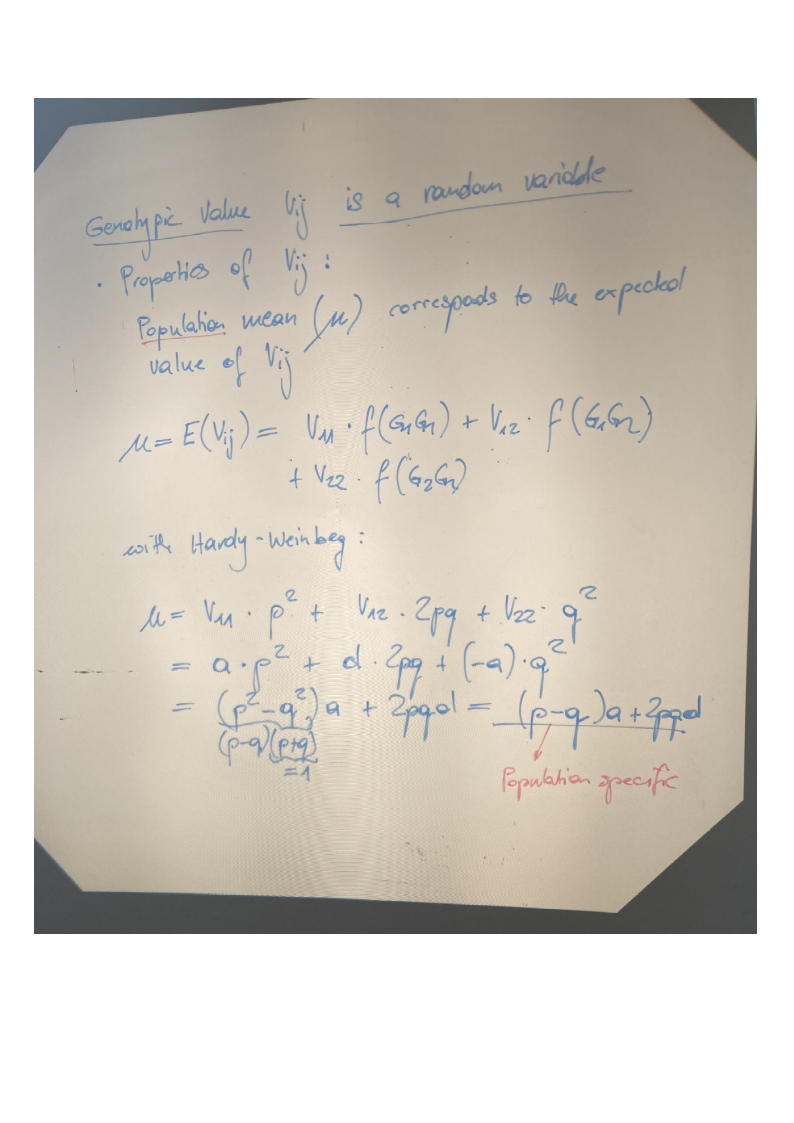 Genotypic Value Vij is a random variable
· Properties of Vij :
Population mean (μ) correspods to the expected
value of Vij
μ = E(Vij) = V11 · f(G1G1) + V12 · f(G1G2)
+ V22 · f(G2G2)
with Hardy-Weinbeg :
μ = V11 · p² + V12 · 2pq + V22 · q²
= a · p² + d · 2pq + (-a) · q²
= (p² - q²) a + 2pqd = (p-q)a + 2pqd
(p-q)(p+q)
=1
Population specific